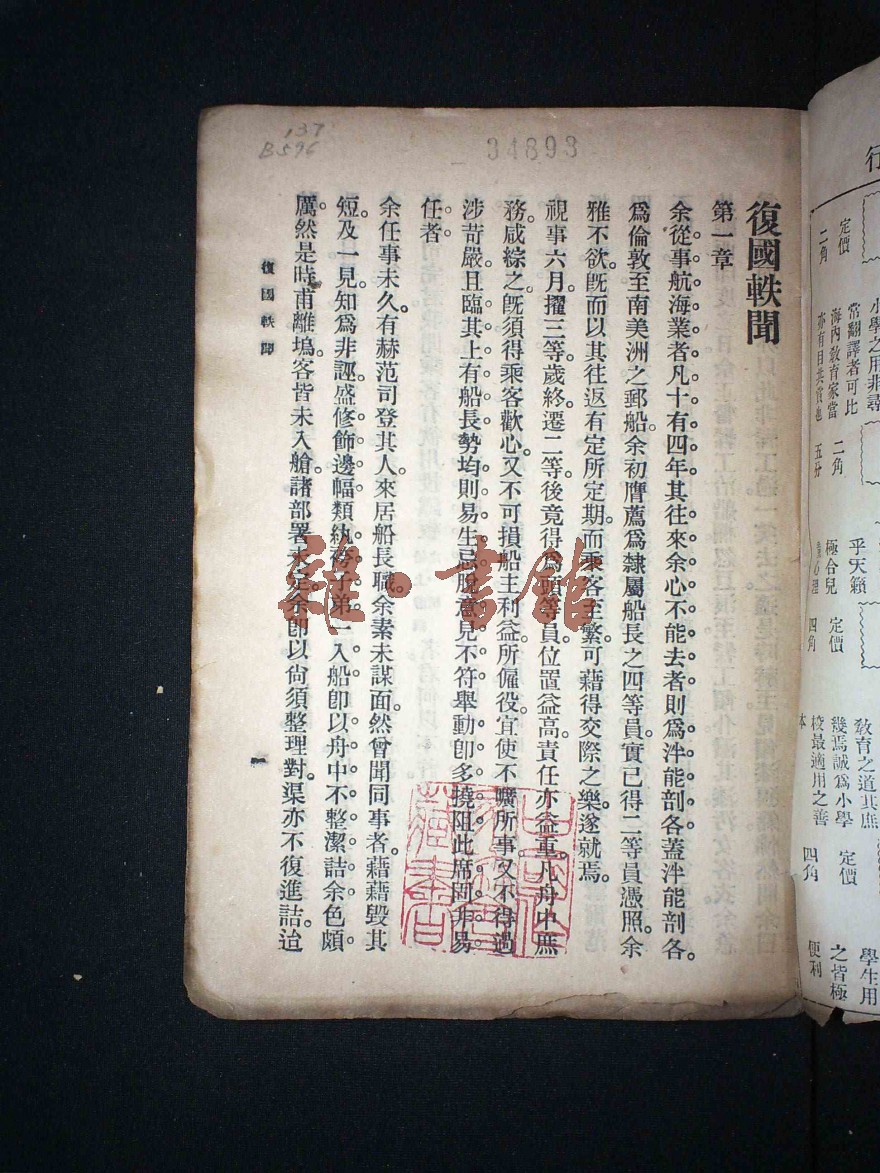 137
B596
34893
復國軼聞
第一章
余從事航海業者凡十有四年。其往來余心不能去者則爲泮能剖各。蓋泮能剖各。
爲倫敦至南美洲之郵船。余初膺薦爲隸屬船長之四等員。實已得二等員憑照。余
雅不欲。旣而以其往返有定所定期。而乘客至繁。可藉得交際之樂。遂就焉。
視事六月。擢三等。歲終。遷二等。後竟得爲頭等員。位置益高。責任亦益重。凡舟中庶
務。咸綜之。旣須得乘客歡心。又不可損船主利益。所僱役。宜使不曠所事。又不得過
涉苛嚴。且臨其上有船長。勢均則易生已脫。意見不符。舉動卽多撓阻。此席固非易
任者。
余任事未久。有赫范司登其人。來居船長職。余素未謀面。然曾聞同事者藉藉毀其
短。及一見。知爲非誣。盛修飾邊幅。類紈袴子弟。一入船。卽以舟中不整潔詰余。色頗
厲。然是時甫離塢。客皆未入艙。諸部署未定。余卽以尙須整理對。渠亦不復進詰。迨
復國軼聞
一
雜·書館
行
定價
二角
小學之用非尋
常翻譯者可比
海內敎育家當
亦有目共賞也
二角
五分
乎天籟
極合兒
童心理
定價
四角
敎育之道其庶
幾焉誠爲小學
校最適用之善
本
定價
四角
學生用
之皆極
便利